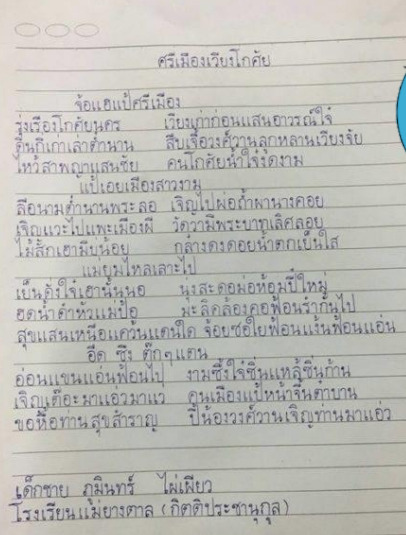 ศรีเมืองเวียงโกศัย
จ้อแฮแป้ศรีเมือง
รุ่งเรืองโกศัยนคร เวียงเก่าก่อนแสนอาวรณ์ใจ๋
ถิ่นกี่เก่าเล่าตำนาน สืบเจื้อวงศ์วานลูกหลานเวียงจัย
ไหว้สาพญาแสนชัย คนโกศัยน้ำใจ๋งดงาม
แป้เอยเมืองสาวงาม
ลือนามตำนานพระลอ เจิญไปผ่อถ้ำผานางคอย
เจิญแวะไปแพะเมืองผี วัดวามีพระบาทเลิศลอย
ไม้สักเฮามีบ่น้อย กล๋างดงดอยน้ำตกเย็นใส
แม่ยมไหลเลาะไป
เย็นดั่งใจ๋เฮานั้นนอ นุ่งสะดอม่อห้อมปี๋ใหม่
ฮดน้ำดำหัวแม่ป้อ มะลิคล้องคอฟ้อนรำกั๋นไป
สุขแสนเหนือแคว้นแดนใด จ้อยซอใยฟ้อนแง้นฟ้อนแอ่น
อืด ซึง ตึ๊กๆแตน
อ่อนแขนแอ่นฟ้อนไป งามซึ้งใจ๋ซิ่นแหล้ซิ่นก้าน
เจิญเต๊อะมาแอ่วมาแว คนเมืองแป้หน้าจื้นต๋าบาน
ขอหื้อท่านสุขสำราญ ปี้น้องวงศ์วานเจิญท่านมาแอ่ว
เด็กชาย ภูมินทร์ ไผ่เผียว
โรงเรียนแม่ยางตาล (กิตติประชานุกูล)